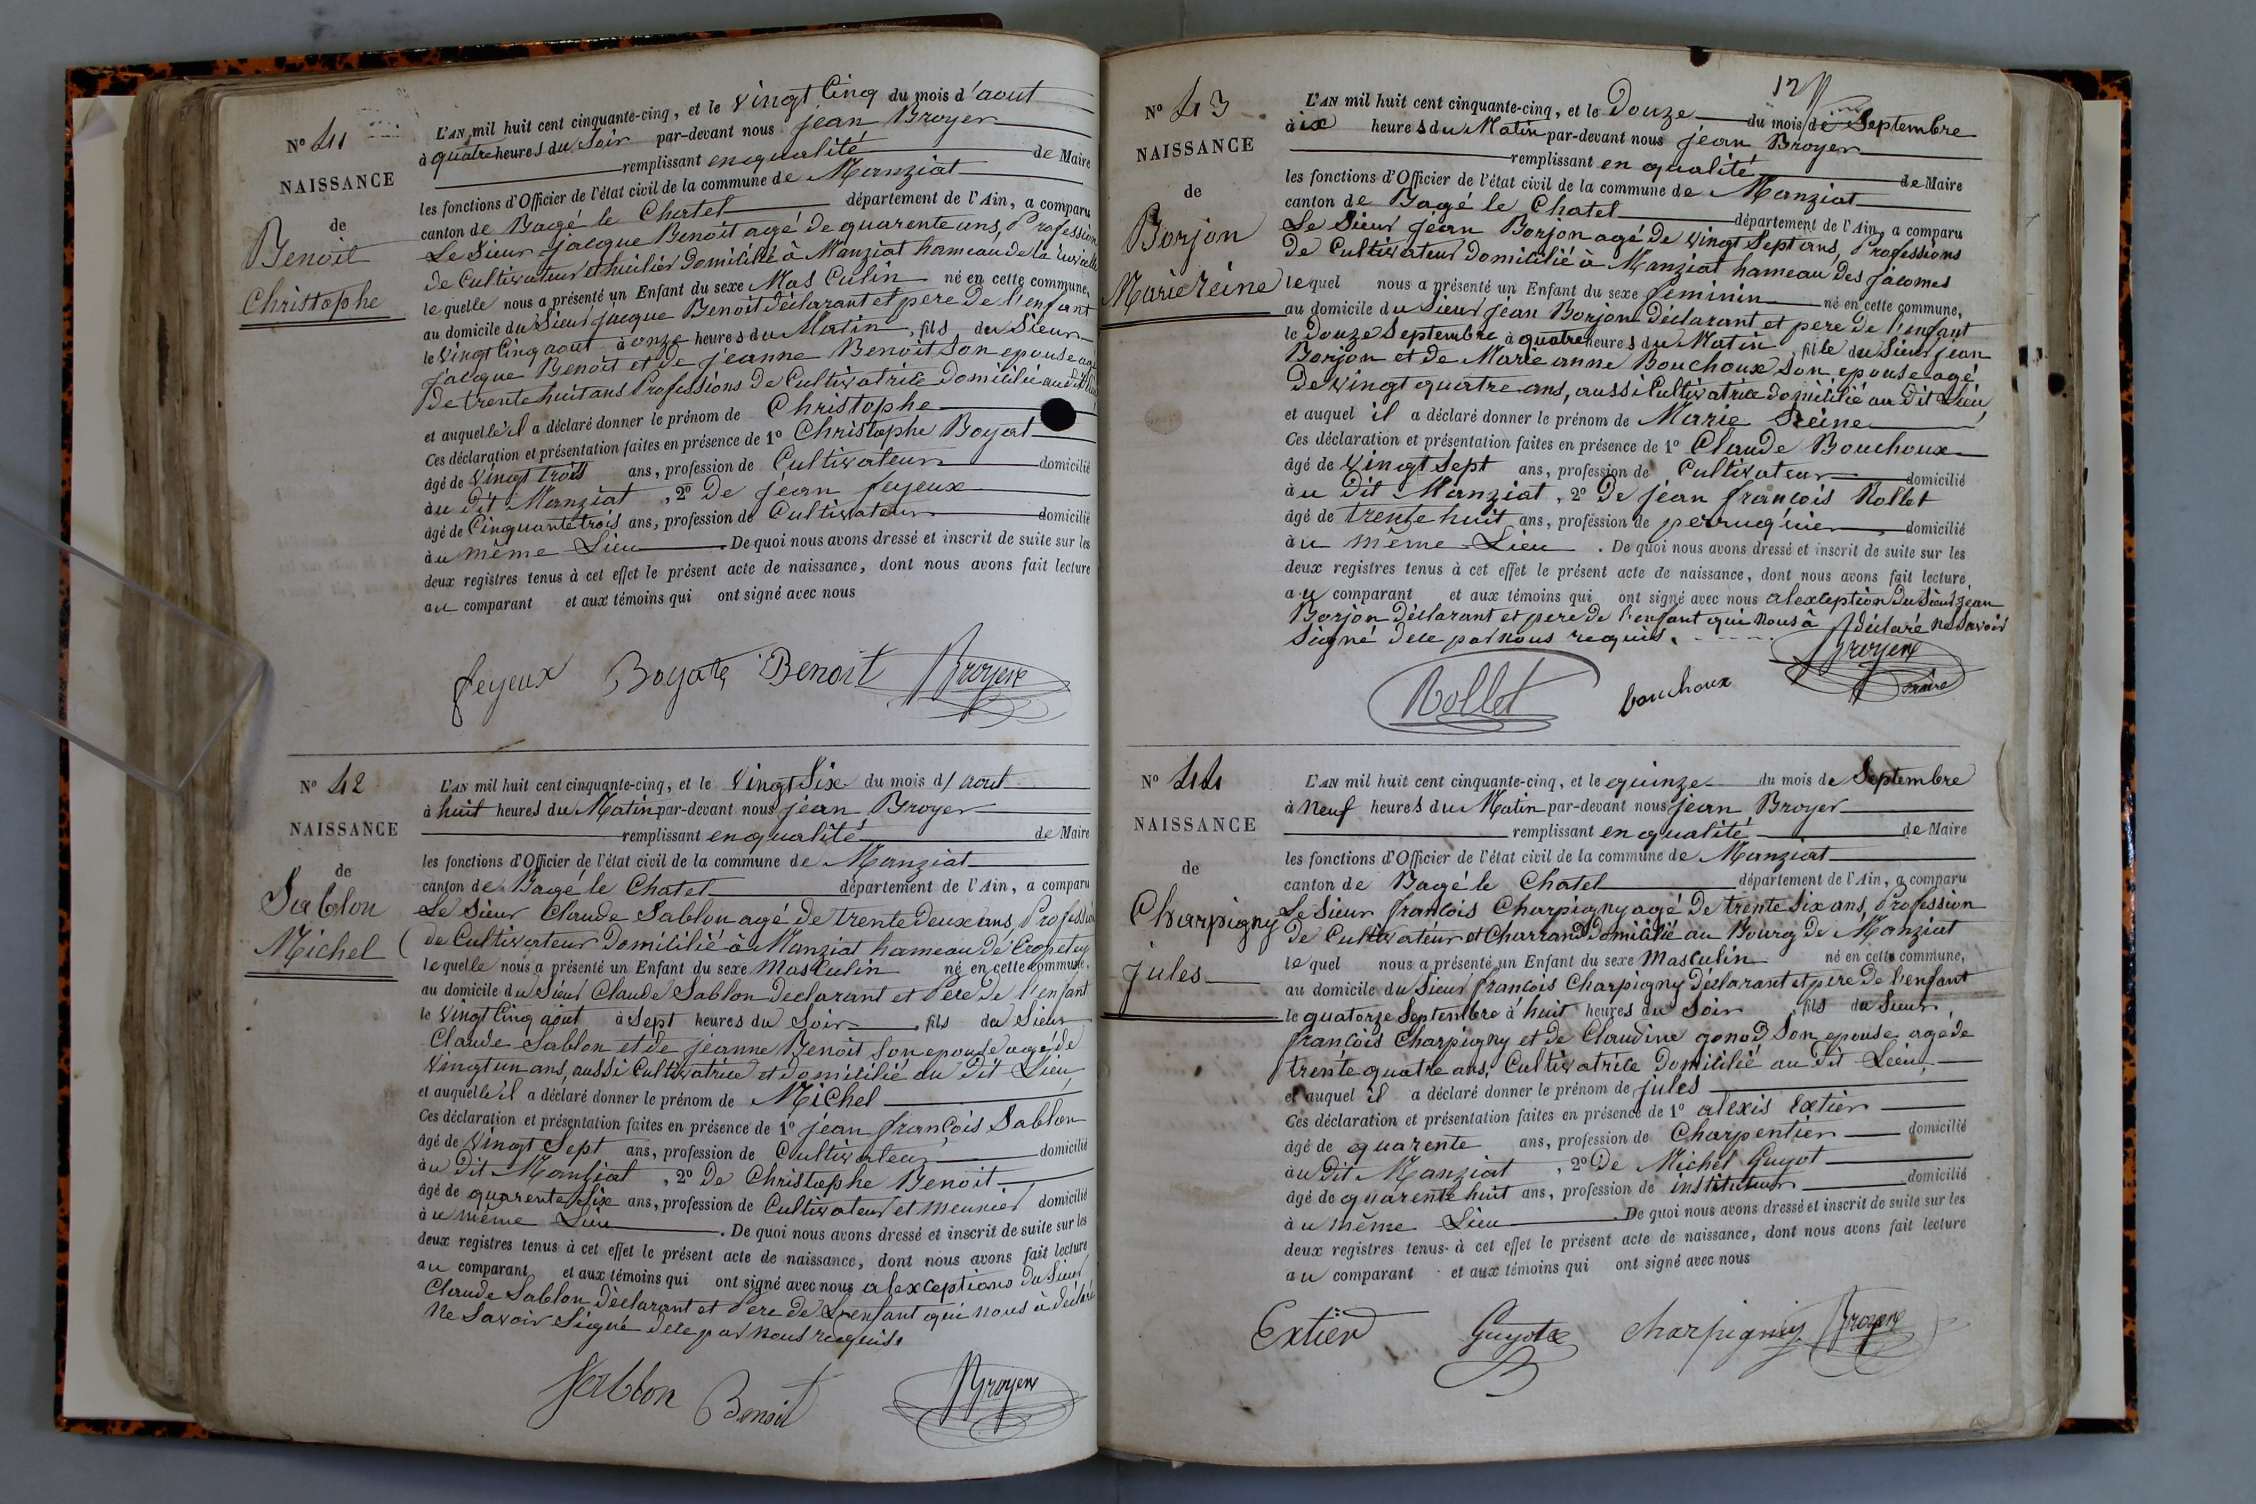 N° 41
NAISSANCE
de
Benoit
Christophe
L'AN mil huit cent cinquante-cinq, et le vingt Cinq du mois d'aout
à quatre heures du Soir par-devant nous jean Broyer
remplissant en qualité de Maire
les fonctions d'Officier de l'état civil de la commune de Manziat
canton de Bagé le Chatel département de l'Ain, a comparu
Le Sieur jacque Benoit agé de quarente ans, Profession
de Cultivateur et huilier Domicilié à Manziat hameau de la
le quelle nous a présenté un Enfant du sexe Mas Culin né en cette commune,
au domicile du Sieur jacque Benoit déclarant et pere de l'enfant
le vingt Cinq aout à onze heures du Matin, fils du Sieur
jacque Benoit et de jeanne Benoit Son epouse agé
de trente huit ans Professions de Cultivatrice Domicilié au dit Lieu
et auquelle il a déclaré donner le prénom de Christophe
Ces déclaration et présentation faites en présence de 1° Christophe Boyat
âgé de vingt trois ans, profession de Cultivateur domicilié
àu dit Manziat, 2° De jean feyeux
âgé de Cinquante trois ans, profession de Cultivateur domicilié
àu même Lieu. De quoi nous avons dressé et inscrit de suite sur les
deux registres tenus à cet effet le présent acte de naissance, dont nous avons fait lecture
au comparant et aux témoins qui ont signé avec nous
feyeux Boyat Benoit Broyer
N° 42
NAISSANCE
de
Sablon
Michel
L'AN mil huit cent cinquante-cinq, et le vingt Six du mois d'aout
à huit heures du Matin par-devant nous jean Broyer
remplissant en qualité de Maire
les fonctions d'Officier de l'état civil de la commune de Manziat
canton de Bagé le Chatel département de l'Ain, a comparu
Le Sieur Claude Sablon agé de trente deux ans, Profession
de Cultivateur Domicilié à Manziat hameau de Cropetey
le quelle nous a présenté un Enfant du sexe Masculin né en cette commune,
au domicile du Sieur Claude Sablon declarant et Pere de l'enfant
le vingt Cinq aout à Sept heures du Soir, fils du Sieur
Claude Sablon et de jeanne Benoit Son epouse agé de
vingt un ans, aussi Cultivatrice et domicilié au dit Lieu
et auquelle il a déclaré donner le prénom de Michel
Ces déclaration et présentation faites en présence de 1° jean françois Sablon
âgé de vingt Sept ans, profession de Cultivateur domicilié
àu dit Manziat, 2° De Christophe Benoit
âgé de quarente Six ans, profession de Cultivateur et meunier domicilié
àu même Lieu. De quoi nous avons dressé et inscrit de suite sur les
deux registres tenus à cet effet le présent acte de naissance, dont nous avons fait lecture
au comparant et aux témoins qui ont signé avec nous alexceptions du Sieur
Claude Sablon Déclarant et Pere de L'enfant qui nous à déclaré
Ne Savoir Signé dece par nous requis.
Sablon Benoit Broyer
12
N° 43
NAISSANCE
de
Borjon
Marie Reine
L'AN mil huit cent cinquante-cinq, et le Douze du mois de Septembre
à ix heures du Matin par-devant nous jean Broyer
remplissant en qualité de Maire
les fonctions d'Officier de l'état civil de la commune de Manziat
canton de Bagé le Chatel département de l'Ain, a comparu
Le Sieur jean Borjon agé de vingt Sept ans, Professions
de Cultivateur domicilié à Manziat hameau des jacomes
le quel nous a présenté un Enfant du sexe feminin né en cette commune,
au domicile du Sieur jean Borjon Déclarant et pere de l'enfant
le Douze Septembre à quatre heures du Matin, fille du Sieur jean
Borjon et de Marie anne Bouchoux Son epouse agé
De vingt quatre ans, aussi Cultivatrice domicilié au dit Lieu,
et auquel il a déclaré donner le prénom de Marie Reine
Ces déclaration et présentation faites en présence de 1° Claude Bouchoux
âgé de vingt Sept ans, profession de Cultivateur domicilié
àu dit Manziat, 2° De jean françois Rollet
âgé de trente huit ans, profession de perruquier domicilié
àu même Lieu. De quoi nous avons dressé et inscrit de suite sur les
deux registres tenus à cet effet le présent acte de naissance, dont nous avons fait lecture
au comparant et aux témoins qui ont signé avec nous alexception du Sieur jean
Borjon déclarant et pere de l'enfant qui nous à déclaré ne Savoir
Signé dece par nous requis.
Rollet bouchoux Broyer
maire
N° 44
NAISSANCE
de
Charpigny
jules
L'AN mil huit cent cinquante-cinq, et le quinze du mois de Septembre
à Neuf heures du Matin par-devant nous jean Broyer
remplissant en qualité de Maire
les fonctions d'Officier de l'état civil de la commune de Manziat
canton de Bagé le Chatel département de l'Ain, a comparu
Le Sieur françois Charpigny agé de trente Six ans, Profession
de Cultivateur et Charrand domicilié au Bourg de Manziat
le quel nous a présenté un Enfant du sexe Masculin né en cette commune,
au domicile du Sieur françois Charpigny Déclarant et pere de l'enfant
le quatorze Septembre à huit heures du Soir, fils du Sieur
françois Charpigny et de Claudine gonod Son epouse, agé de
trente quatre ans, Cultivatrice domicilié au dit Lieu,
et auquel il a déclaré donner le prénom de jules
Ces déclaration et présentation faites en présence de 1° alexis Extier
âgé de quarente ans, profession de Charpentier domicilié
àu dit Manziat, 2° De Michel Guyot
âgé de quarente huit ans, profession de instituteur domicilié
àu même Lieu. De quoi nous avons dressé et inscrit de suite sur les
deux registres tenus à cet effet le présent acte de naissance, dont nous avons fait lecture
au comparant et aux témoins qui ont signé avec nous
Extier Guyot charpigny Broyer